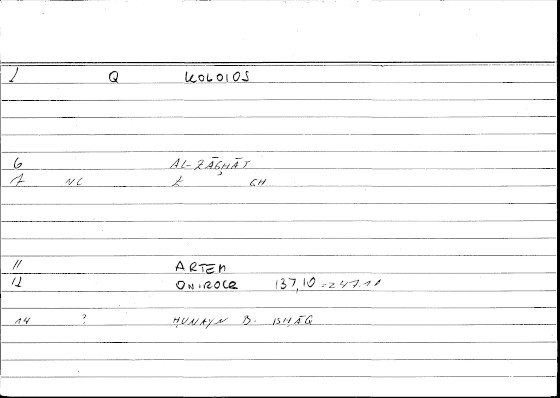 1 Q KOLOIOS
6 AL-ZĀĠHĀT
7 NC Z GH
11 ARTEM
12 ONIROCR 137,10 = 247.11
14 ? ḤUNAYN B. ISḤĀQ